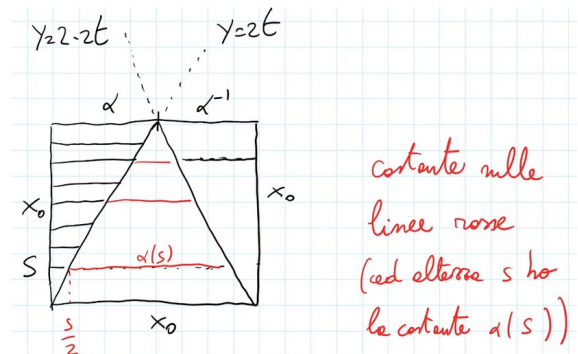 y=2-2t
y=2t
α
α⁻¹
x₀
x₀
s
α(s)
s/2
x₀
costante sulle
linee rosse
(ad altezza s ho
la costante α(s))